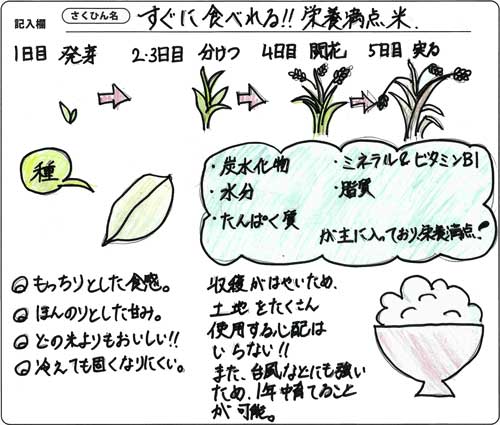 記入欄 さくひん名 すぐに食べれる!! 栄養満点米.
1日目 発芽 2・3日目 分けつ 4日目 開花 5日目 実る
種
・炭水化物
・水分
・たんぱく質
・ミネラル&ビタミンB1
・脂質
が主に入っており栄養満点!
◎もっちりとした食感。
◎ほんのりとした甘み。
◎どの米よりもおいしい!!
◎冷えても固くなりにくい。
収穫がはやいため、
土地をたくさん
使用する心配は
いらない!!
また、台風などにも強い
ため、1年中育てること
が可能。